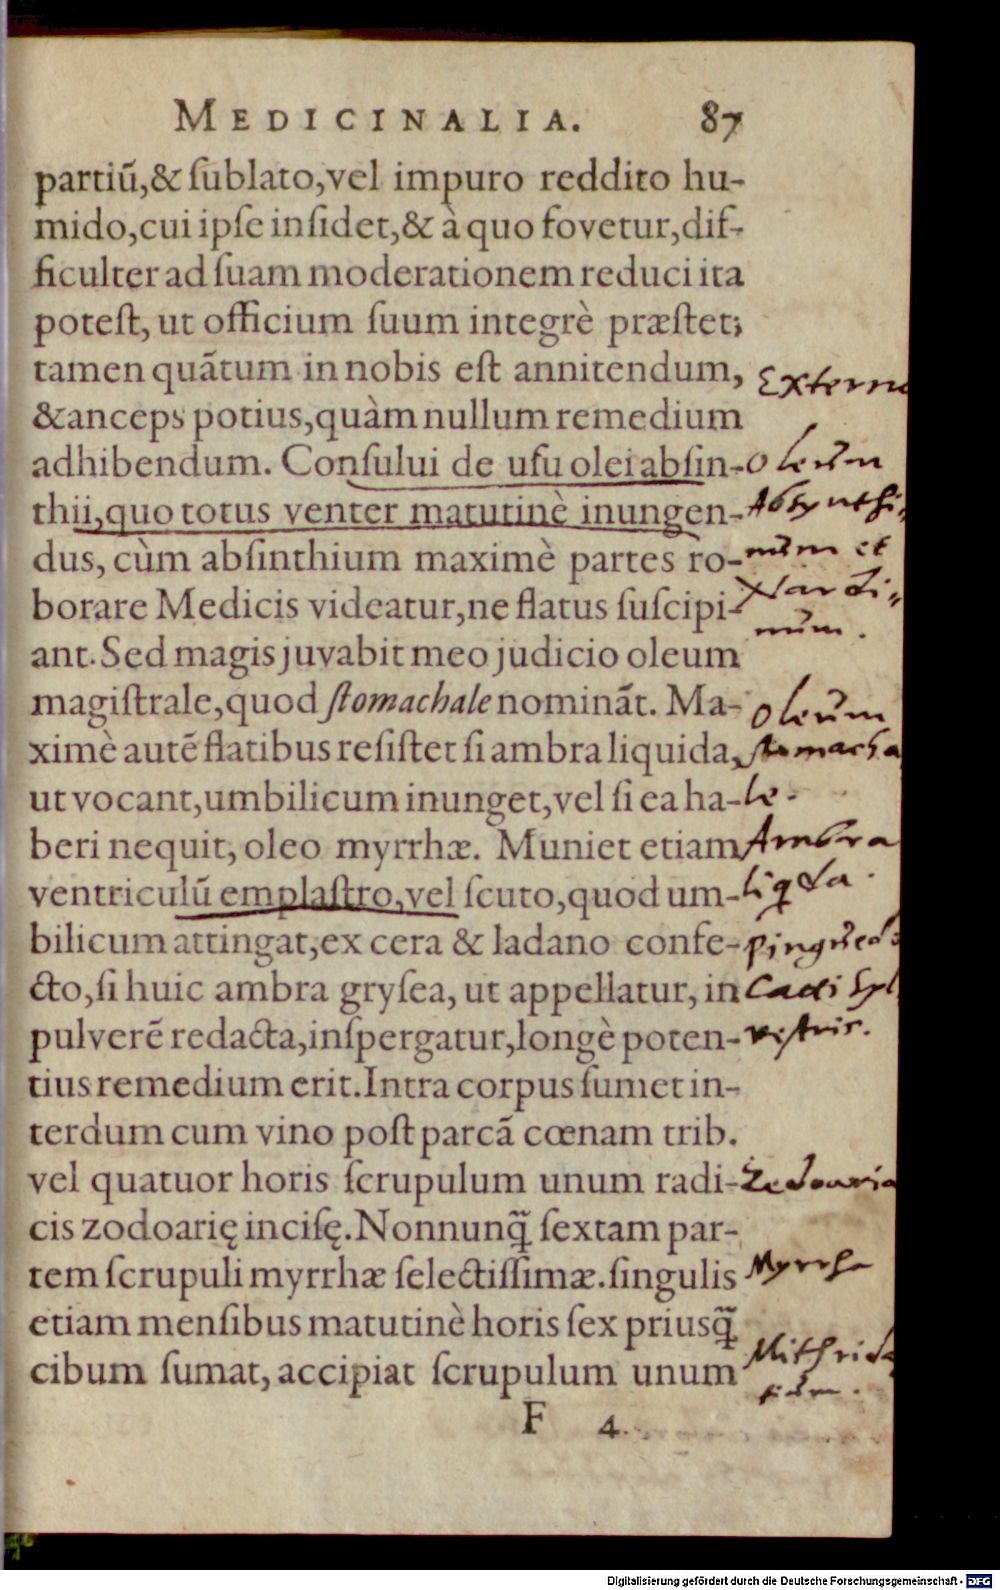 MEDICINALIA. 87
partiũ,& ſublato,vel impuro reddito hu-
mido,cui ipſe inſidet,& à quo fovetur,dif-
ficulter ad ſuam moderationem reduci ita
poteſt, ut officium ſuum integrè præſtet;
tamen quãtum in nobis eſt annitendum,
Externe
&anceps potius,quàm nullum remedium
adhibendum. Conſului de uſu olei abſin-
Oleum
thii,quo totus venter matutinè inungen-
Absynthi-
dus, cùm abſinthium maximè partes ro-
num et
borare Medicis videatur,ne flatus ſuſcipi-
Nardi-
num.
ant. Sed magis juvabit meo judicio oleum
magiſtrale,quod ſtomachale nominãt. Ma-
Oleum
ximè autẽ flatibus reſiſtet ſi ambra liquida,
stomacha
ut vocant,umbilicum inunget,vel ſi ea ha-
le.
beri nequit, oleo myrrhæ. Muniet etiam
Ambra
ventriculũ emplaſtro,vel ſcuto,quod um-
liqda.
bilicum attingat,ex cera & ladano confe-
pinguedo
cto,ſi huic ambra gryſea, ut appellatur, in
Cati Syl
pulverẽ redacta,inſpergatur,longè poten-
vestris.
tius remedium erit.Intra corpus ſumet in-
terdum cum vino poſt parcã cœnam trib.
vel quatuor horis ſcrupulum unum radi-
Zedoaria
cis zodoarię inciſę.Nonnunq̃ ſextam par-
tem ſcrupuli myrrhæ ſelectiſſimæ.ſingulis
Myrrha
etiam menſibus matutinè horis ſex priusq̃
cibum ſumat, accipiat ſcrupulum unum
Mithrida
tium.
F 4.
Digitalisierung gefördert durch die Deutsche Forschungsgemeinschaft - DFG